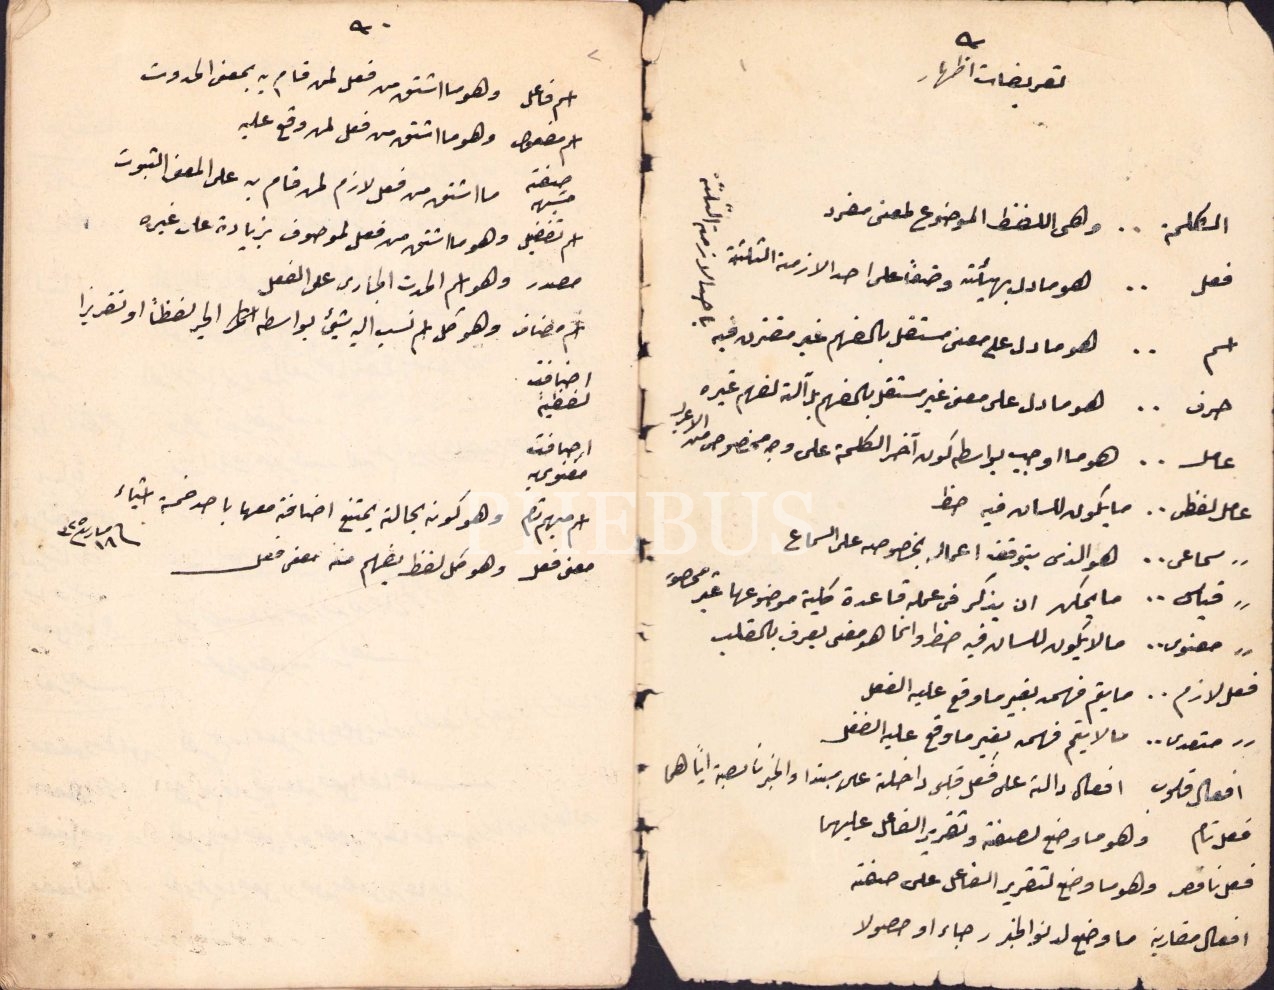 تعريفات اظهار
الكلمة ·· وهى اللفظ الموضوع لمعنى مفرد
فعل ·· هو مادل بهيئته وضعاً على احد الازمنة الثلثة
اسم ·· هو مادل على معنى مستقل بالفهم غير مقترن فيه
باحد الازمنة الثلثة
حرف ·· هو مادل على معنى غير مستقل بالفهم بل آلة لفهم غيره
عامل ·· هو ما اوجب بواسطه كون آخر الكلمة على وجه مخصوص من الاعراب
عامل لفظى ·· ما يكون للسان فيه حظ
〃 سماعى ·· هو الذى يتوقف اعماله بخصوصه على السماع
〃 قياسى ·· ما يمكن ان يذكر فى عمله قاعدة كلية موضوعها غير محصور
〃 معنوى ·· ما لا يكون للسان فيه حظ وانما هو معنى يعرف بالقلب
فعل لازم ·· ما يتم فهمه بغير ما وقع عليه الفعل
〃 متعدى ·· ما لا يتم فهمه بغير ما وقع عليه الفعل
افعال قلوب افعال دالة على فعل قلبى داخلة على مبتدا والخبر ناصبة اياهما
فعل تام وهو ما وضع لصفة وتقرير الفاعل عليها
فعل ناقص وهو ما وضع لتقرير الفاعل على صفته
افعال مقاربه ما وضع لدنو الخبر رجاء او حصولا
اسم فاعل وهو ما اشتق من فعل لمن قام به بمعنى الحدوث
اسم مفعول وهو ما اشتق من فعل لمن وقع عليه
صفة مشبهه ما اشتق من فعل لازم لمن قام به على المعنى الثبوت
اسم تفضيل وهو ما اشتق من فعل لموصوف بزيادة على غيره
مصدر وهو اسم الحدث الجارى على الفعل
اسم مضاف وهو كل اسم نسب اليه شئ بواسطه الجر لفظاً او تقديرا
اضافت لفظيه
اضافت معنويه
اسم مبهم تام وهو كونه بحالة يمتنع اضافته معها باحد خمسة اشياء
معنى فعل وهو كل لفظ يفهم منه معنى فعل
PHEBUS